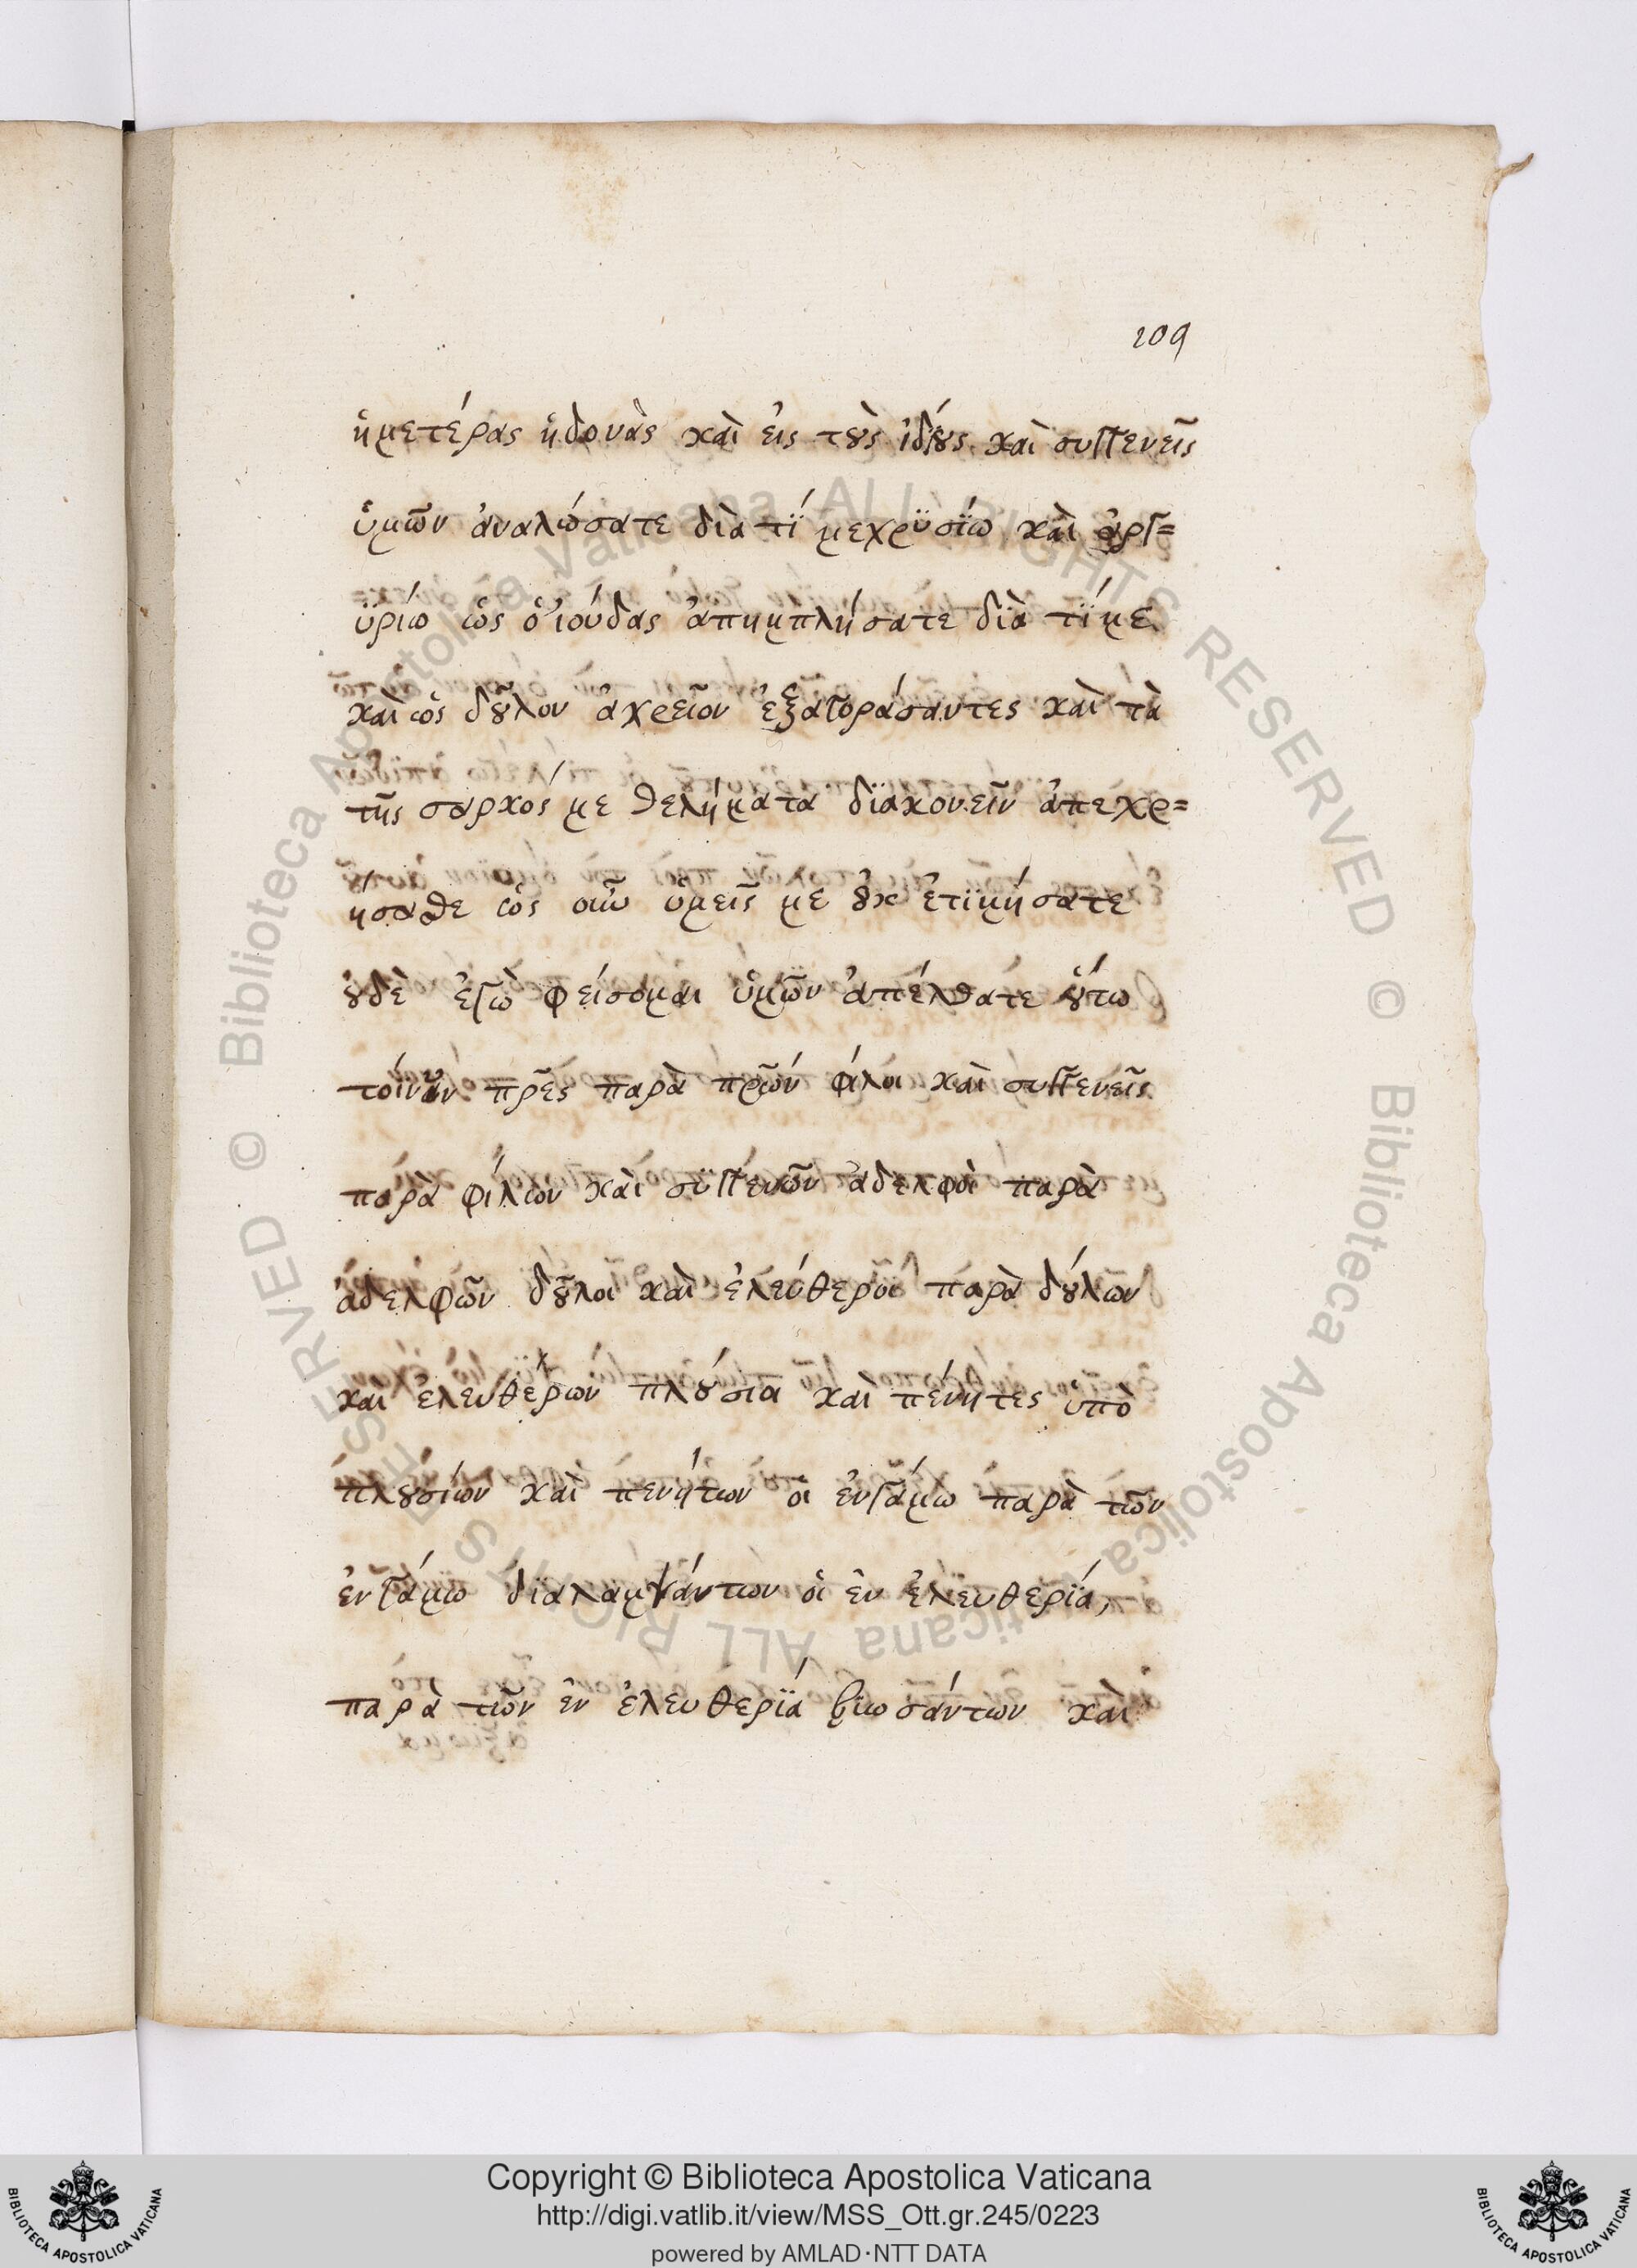 209
ἡμετέρας ἡδονὰς καὶ εἰς τȣ̀ς ἰδίȣς καὶ συγγενεῖς
ὑμῶν ἀναλώσατε διὰ τί μεχρϋσίω καὶ ἀργ=
ϋρίω ὡς ὁ ἰούδας ἀπημπλήσατε διὰ τί με
καὶ ὡς δȣ͂λον ἀχρεῖον ἐξαγοράσαντες καὶ τὰ
τῆς σαρκός με θελήματα διακονεῖν ἀπεχρ=
ήσασθε ὡς οὖν ὑμεῖς με ȣ̓κ ἐτιμήσατε
ȣ̓δὲ ἐγὼ φείσομαι ὑμῶν ἀπέλθατε ȣ̔́τω
τοίνυν πρ̃ες παρὰ πρ̃ων φίλοι καὶ συγγενεῖς
παρὰ φίλων καὶ συγγενῶν ἀδελφοὶ παρὰ
ἀδελφῶν δȣ͂λοι καὶ ἐλεύθεροι παρὰ δȣ́λων
καὶ ἐλευθέρων πλȣ́σιοι καὶ πένητες ὑπὸ
πλȣσίων καὶ πενήτων οἱ ἐνγάμω παρὰ τῶν
ἐνγάμω διαλαμψάντων οἱ ἐν ἐλευθερϊά,
παρὰ τῶν ἐν ἐλευθερϊά βιωσάντων καὶ
Copyright © Biblioteca Apostolica Vaticana
http://digi.vatlib.it/view/MSS_Ott.gr.245/0223
powered by AMLAD·NTT DATA
BIBLIOTECA APOSTOLICA VATICANA
BIBLIOTECA APOSTOLICA VATICANA
© Biblioteca Apostolica Vaticana ALL RIGHTS RESERVED © Biblioteca Apostolica Vaticana ALL RIGHTS RESERVED